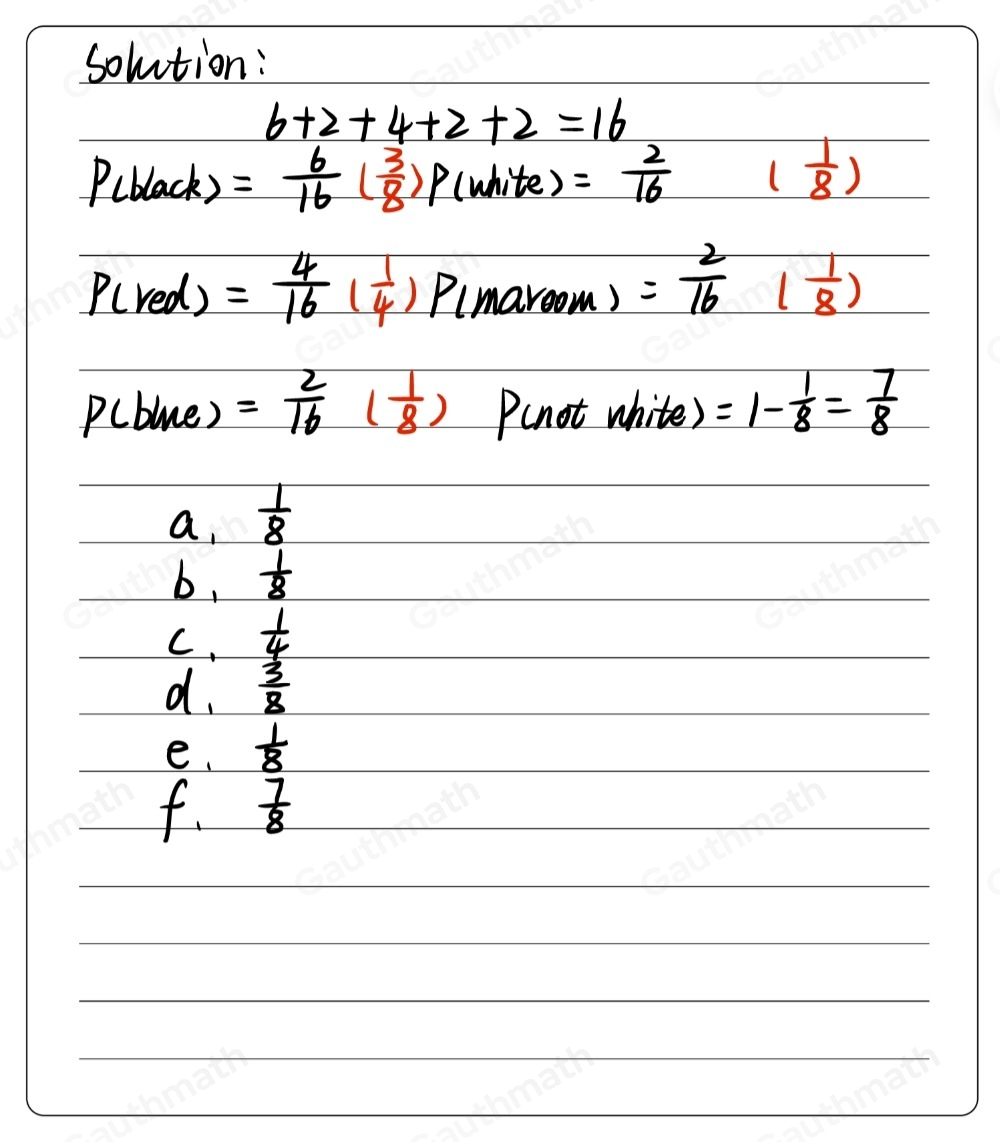 Solution:
6+2+4+2+2=16
P(black) = 6/16 (3/8) P(white) = 2/16 (1/8)
P(red) = 4/16 (1/4) P(maroom) = 2/16 (1/8)
P(blue) = 2/16 (1/8) P(not white) = 1-1/8 = 7/8
a, 1/8
b, 1/8
c, 1/4
d, 3/8
e, 1/8
f, 7/8